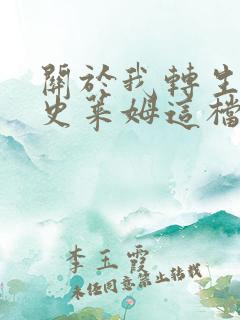 關於我轉生
史萊姆這檔
李玉霞
未经同意禁止转载